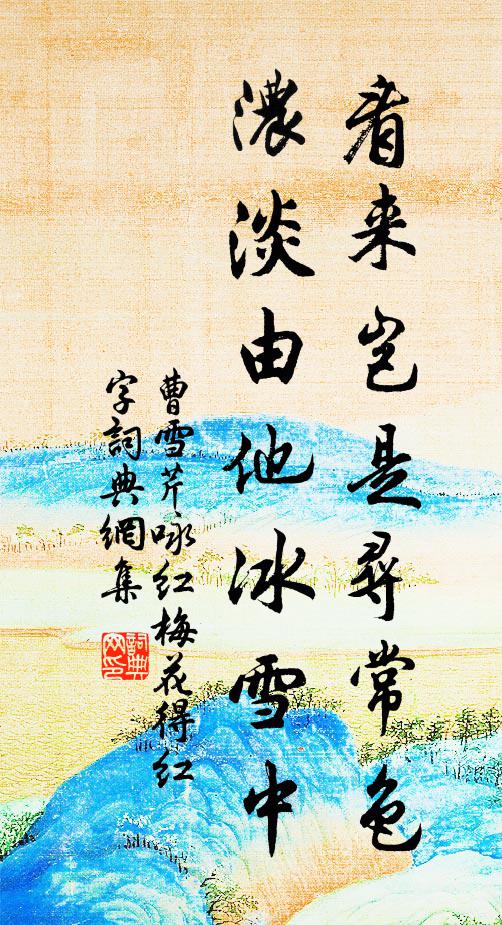 看来岂是尋常色
濃淡由他冰雪中
曹雪芹咏红梅花得红
字詞典網集
詞典网印